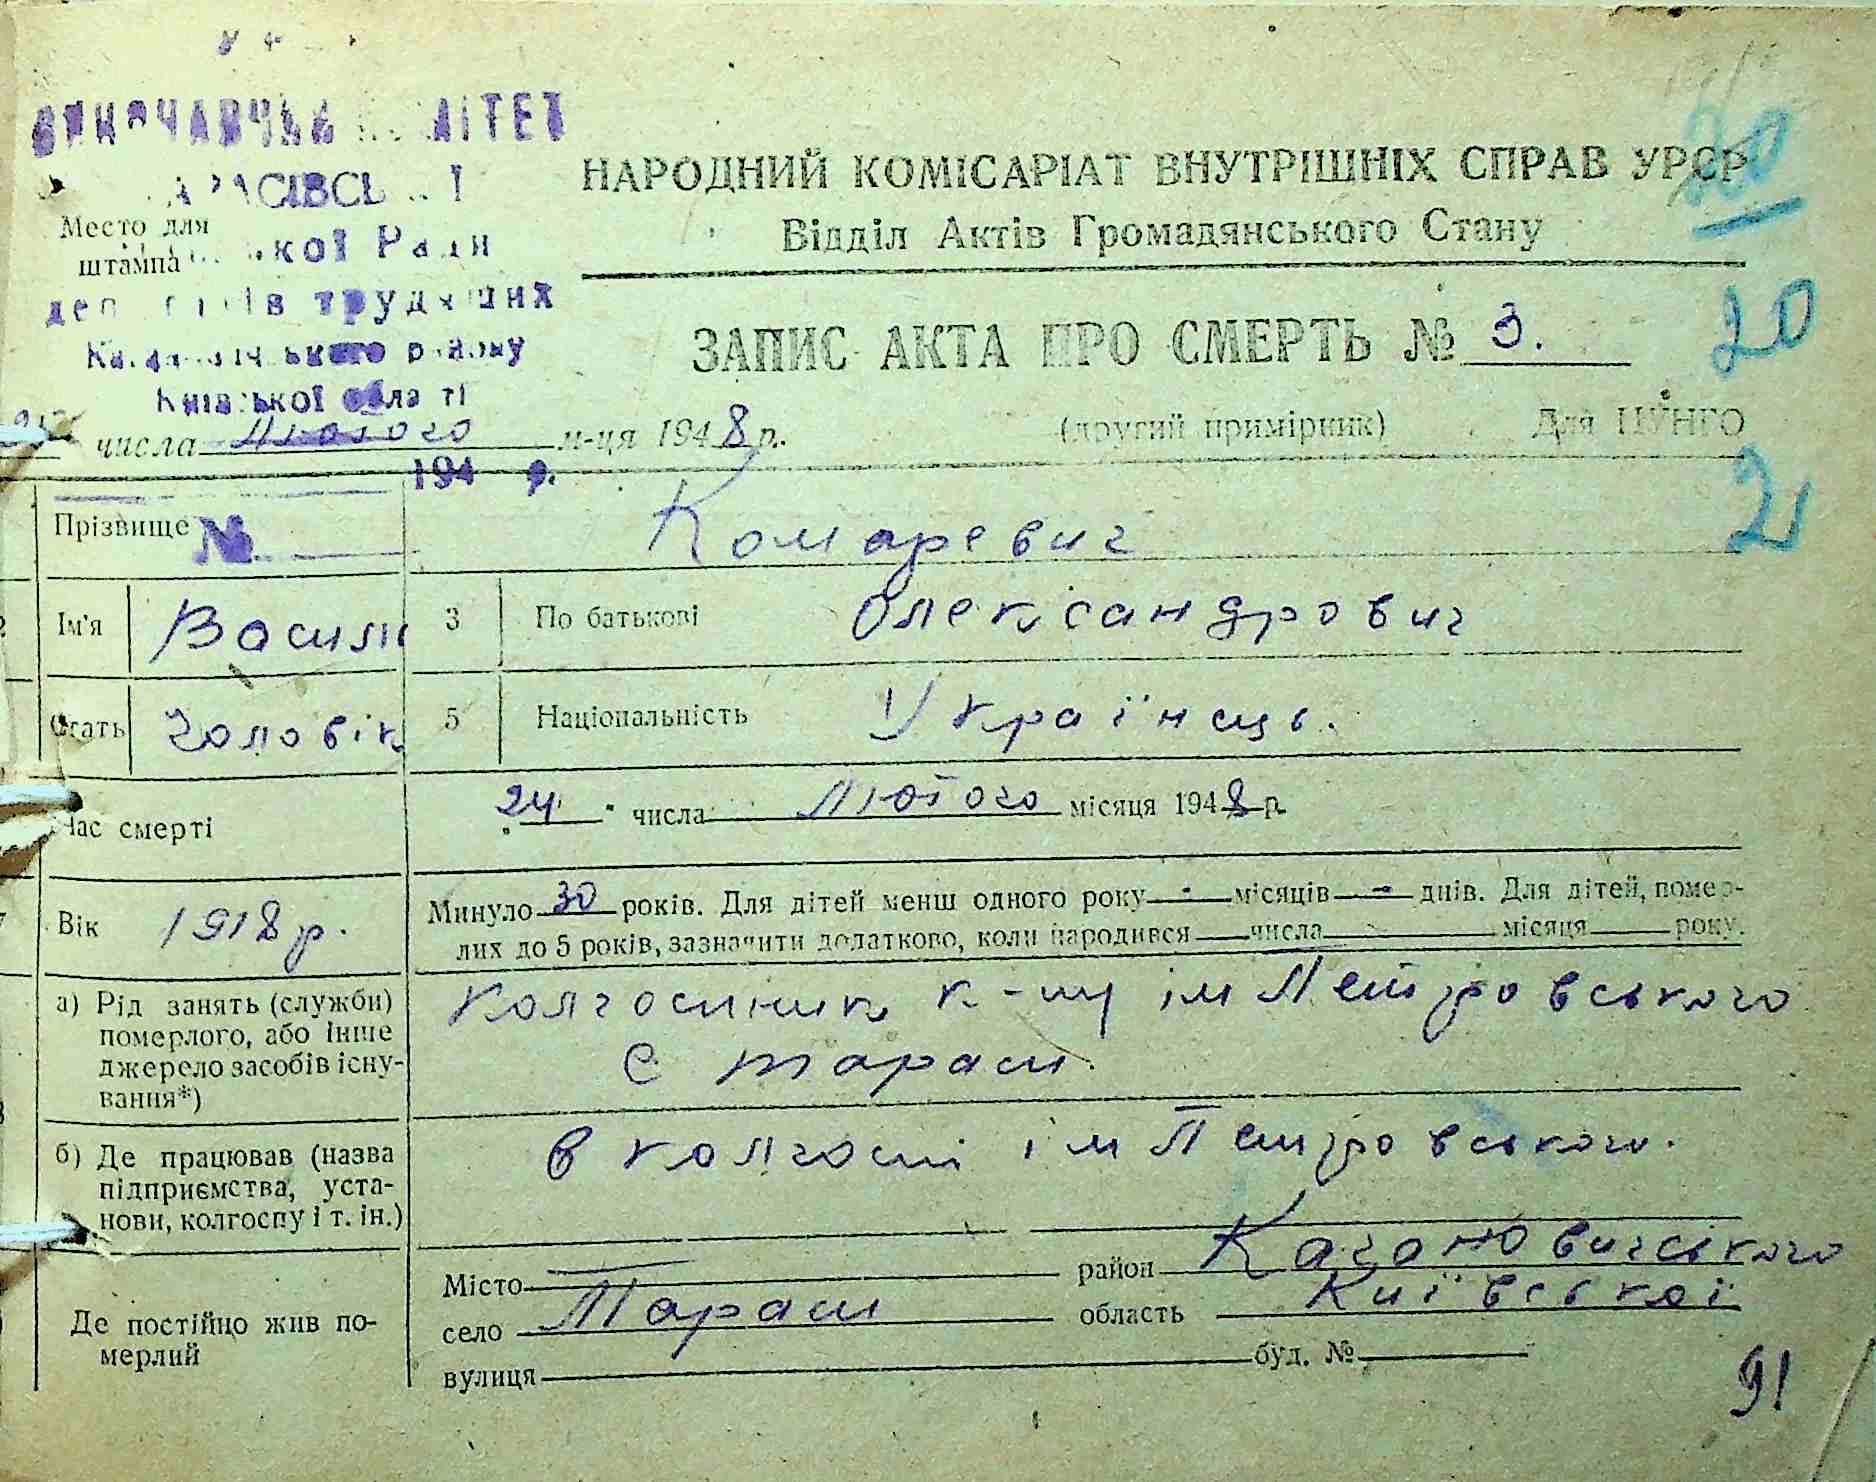 НАРОДНИЙ КОМІСАРІАТ ВНУТРІШНІХ СПРАВ УРСР
20
Відділ Актів Громадянського Стану
Место для
штампа
кої Ради
трудящих
району
Київської області
ЗАПИС АКТА ПРО СМЕРТЬ № 3.
20
числа Лютого м-ця 1948 р.
(другий примірник) Для ЦУНГО
194 р.
21
Прізвище № Комаревич
Ім'я Василь 3 По батькові Олександрович
Стать Чоловік 5 Національність Українець.
Час смерті „24" числа Лютого місяця 1948 р.
Вік 1918 р. Минуло 30 років. Для дітей менш одного року - місяців - днів. Для дітей, помер-
лих до 5 років, зазначити додатково, коли народився числа місяця року.
а) Рід занять (служби)
померлого, або інше
джерело засобів існу-
вання*)
колгоспник к-пу ім Петровського
с тараси.
б) Де працював (назва
підприємства, уста-
нови, колгоспу і т. ін.)
в колгоспі ім Петровського.
Де постійно жив по-
мерлий
Місто район Кагановичського
село Тараси область Київської
вулиця буд. №
91